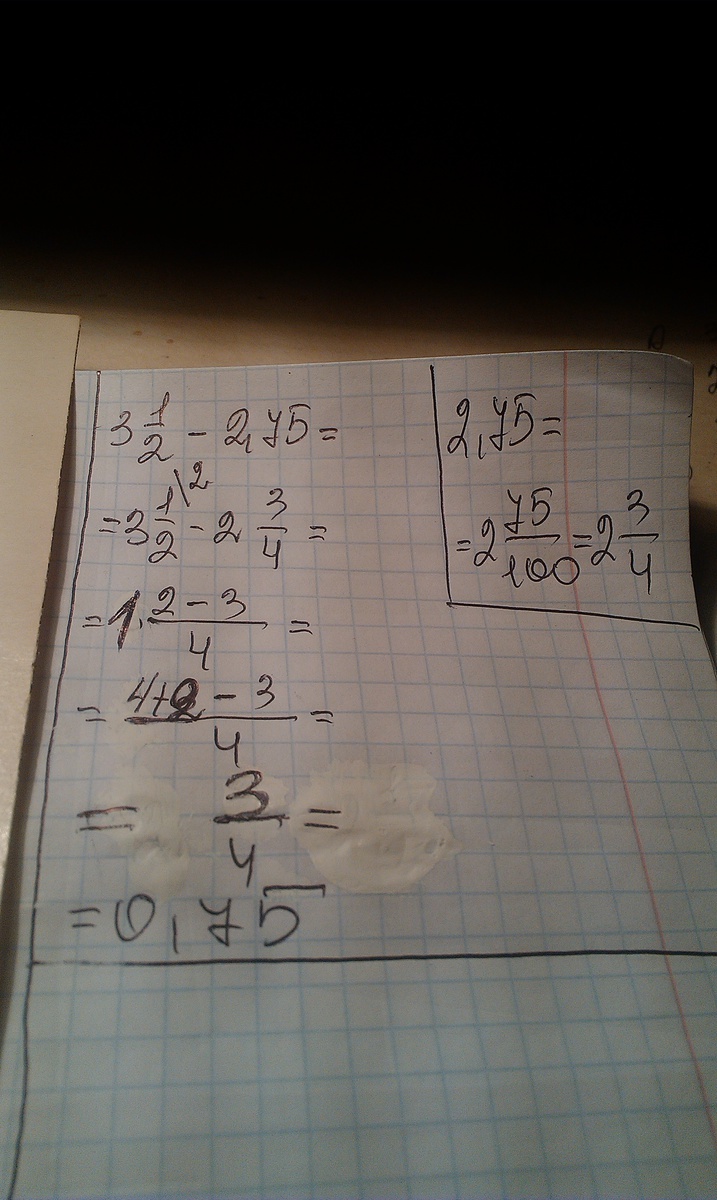 3 1/2 - 2,75 =
= 3 1/2 \2 - 2 3/4 =
= 1 · (2 - 3)/4 =
= (4+2 - 3)/4 =
= 3/4 =
= 0,75
2,75 =
= 2 75/100 = 2 3/4